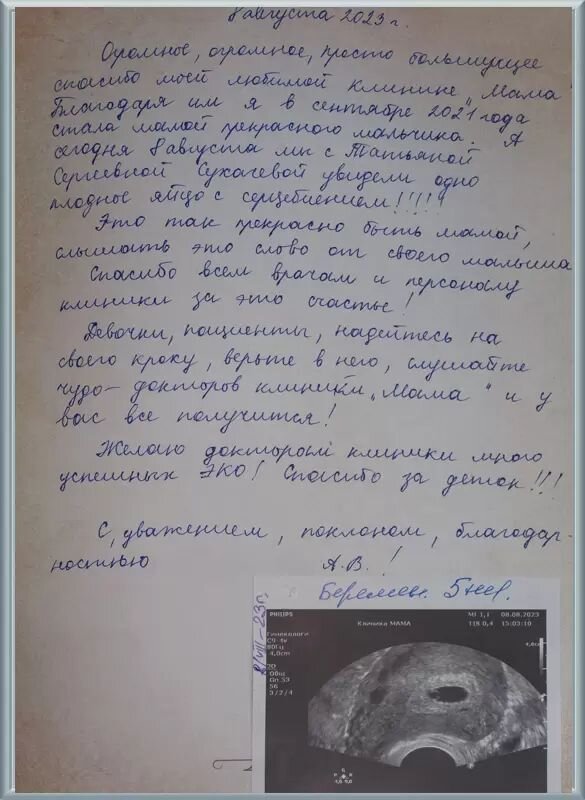 8 августа 2023 г.
Огромное, огромное, просто большущее
спасибо моей любимой клинике „Мама"
Благодаря им я в сентябре 2021 года
стала мамой прекрасного мальчика. А
сегодня 8 августа мы с Татьяной
Сергеевной Сухачевой увидели одно
плодное яйцо с серцебиением!!!!!
Это так прекрасно быть мамой,
слышать это слово от своего малыша
Спасибо всем врачам и персоналу
клиники за это счастье!
Девочки, пациенты, надейтесь на
своего кроху, верьте в него, слушайте
чудо-докторов клиники „Мама" и у
вас все получится!
Желаю докторам клиники много
успешных ЭКО! Спасибо за деток!!!
С, уважением, поклоном, благодар-
ностью А.В.!
Беремен. 5 нед.
8/VIII-23г.
PHILIPS
MI 1,1 08.08.2023
Клиника МАМА
TIS 0,4 15:03:10
Гинекологи
C9-4v
80Гц
4,0cm
4,0см
2D
Общ
Gn 53
56
3/2/4